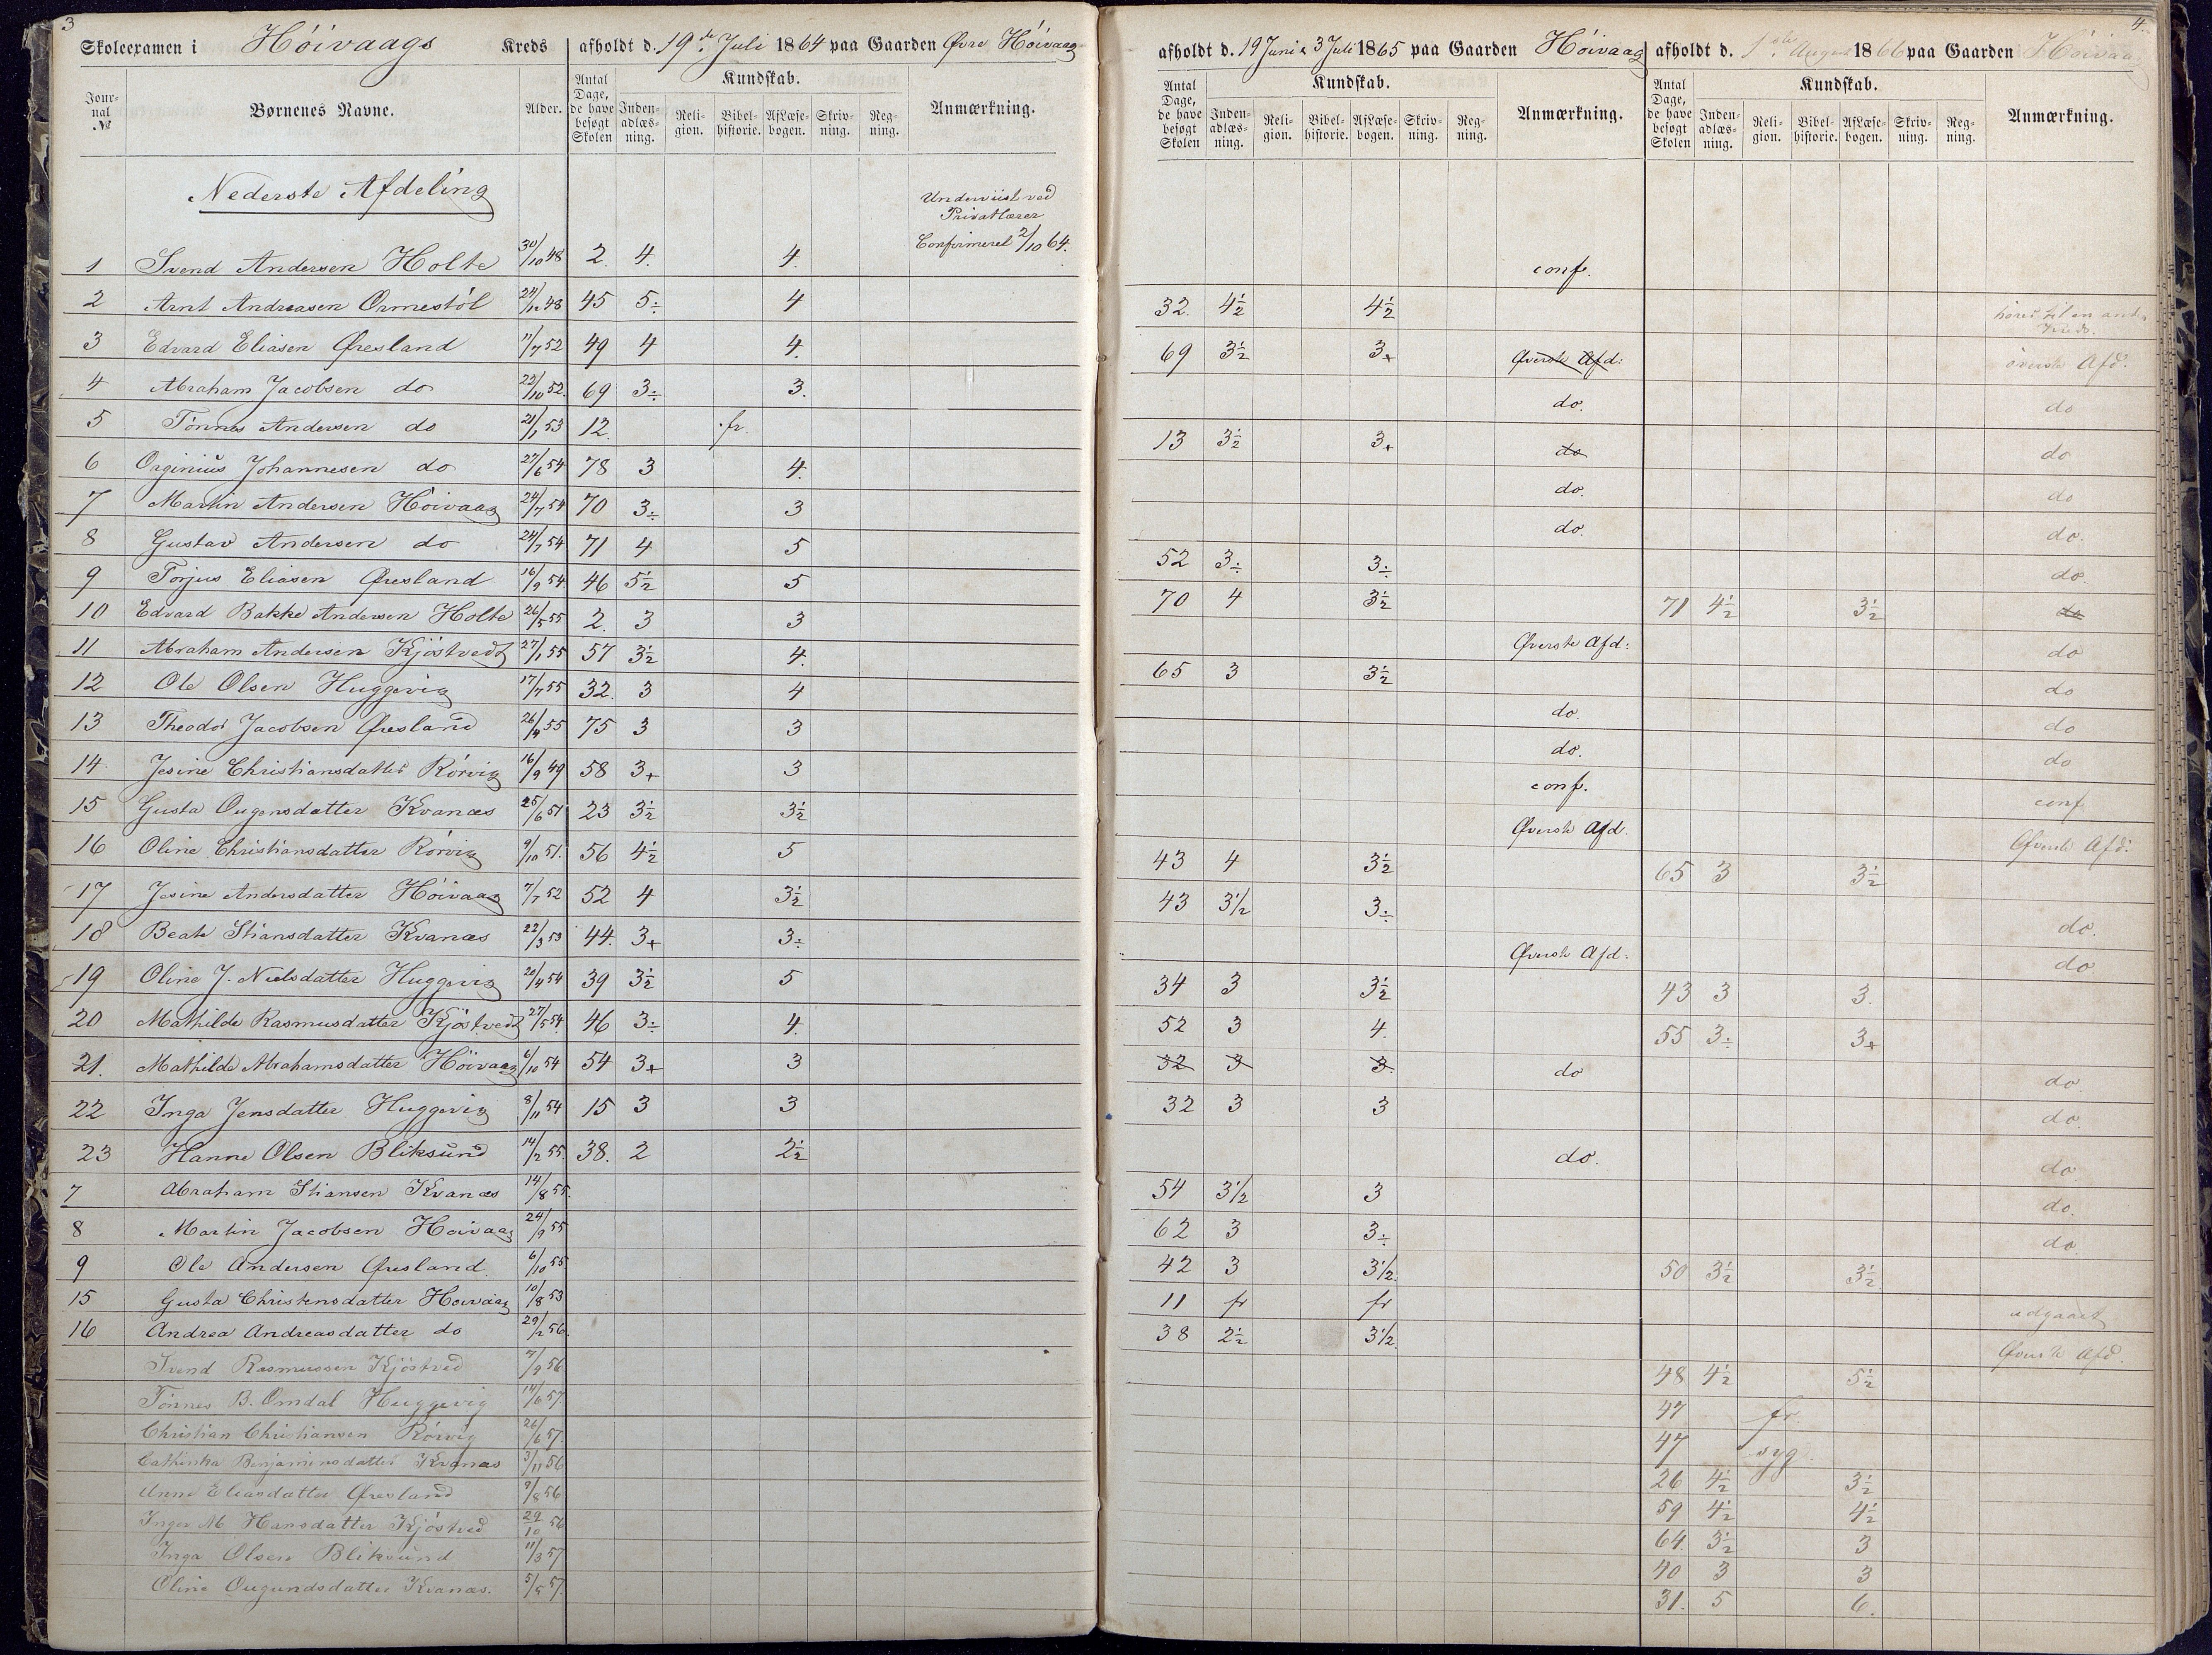 3
Skoleexamen i Höivaags Kreds afholdt d. 19de Juli 1864 paa Gaarden Øvre Höivaag
Journal № Børnenes Navne. Alder. Antal Dage, de have besøgt Skolen Kundskab. Indenadlæsning. Religion. Bibelhistorie. Af Læsebogen. Skrivning. Regning. Anmærkning.
Nederste Afdeling
Underviist ved
Privatlærer
Confirmeret 2/10 64.
1 Svend Andersen Holte 30/10 48 2. 4. 4.
2 Arnt Andreasen Ormestöl 24/12 48 45 5÷ 4
3 Edvard Eliasen Øresland 11/7 52 49 4 4.
4 Abraham Jacobsen do 23/10 52. 69 3÷ 3.
5 Tönnes Andersen do 21/1 53 12. fr.
6 Orginius Johannesen do 27/6 54 78 3 4.
7 Martin Andersen Höivaag 24/7 54 70 3÷ 3
8 Gustav Andersen do 24/7 54 71 4 5
9 Torjus Eliasen Øresland 16/9 54 46 5½ 5
10 Edvard Bakke Andersen Holte 26/5 55 2. 3 3
11 Abraham Andersen Kjöstvedt 27/1 55 57 3½ 4.
12 Ole Olsen Huggevig 17/7 55 32. 3 4
13 Theodor Jacobsen Øresland 26/4 55 75 3 3
14. Jesine Christiansdatter Rörvig 16/9 49 58 3+ 3
15 Gusta Ougensdatter Kvanæs 25/6 51 23 3½ 3½
16 Oline Christiansdatter Rörvig 9/10 51. 56 4½ 5
17 Jesine Andersdatter Höivaag 7/7 52 52 4 3½
18 Beate Stiansdatter Kvanæs 22/3 53 44. 3+ 3÷
19 Oline J. Nielsdatter Huggevig 20/4 54 39 3½ 5
20 Mathilde Rasmusdatter Kjöstvedt 27/5 54 46 3÷ 4.
21. Mathilde Abrahamsdatter Höivaag 6/10 54 54 3+ 3
22 Inga Jensdatter Huggevig 8/11 54 15 3 3
23 Hanne Olsen Bliksund 14/2 55. 38. 2 2½
7 Abraham Stiansen Kvanæs 14/8 55.
8 Martin Jacobsen Hoivaag 24/9 55
9 Ole Andersen Øresland. 6/10 55
15 Gusta Christensdatter Hoivaag 10/8 53
16 Andrea Andreasdatter do 29/2 56.
Svend Rasmussen Kjöstved 7/9 56
Tönnes B. Omdal Huggevig 14/6 57.
Christian Christiansen Rörvig 26/6 57.
Cathinka Benjaminsdatter Kvanæs 3/11 56
Anne Eliasdatter Øresland 9/8 56
Inger M. Hansdatter Kjöstved 29/10 56
Inga Olsen Bliksund 11/3 57
Oline Ougundsdatter Kvanæs. 5/5 57.
4.
afholdt d. 19 Juni & 3 Juli 1865 paa Gaarden Höivaag afholdt d. 1ste August 1866 paa Gaarden Höivaag
Antal Dage, de have besøgt Skolen Kundskab. Indenadlæsning. Religion. Bibelhistorie. Af Læsebogen. Skrivning. Regning. Anmærkning. Antal Dage, de have besøgt Skolen Kundskab. Indenadlæsning. Religion. Bibelhistorie. Af Læsebogen. Skrivning. Regning. Anmærkning.
conf.
32. 4½ 4½ hörer til en anden Kreds.
69 3½ 3+ Øverste Afd: överste Afd.
do. do
13 3½ 3+ do do
do. do
do. do.
52 3÷ 3÷ do.
70 4 3½ 71 4½ 3½ do
Øverste Afd: do
65 3 3½ do
do. do
do. do
conf. conf.
Øverste Afd. Øverste Afd:
43 4 3½ 65 3 3½
43 3½ 3÷ do.
Øverste Afd: do
34 3 3½ 43 3 3.
52 3 4. 55 3÷ 3+
32 3 3. do do.
32 3 3 do.
do. do
54 3½ 3 do.
62 3 3÷ do.
42 3 3½. 50 3½ 3½
11 fr fr udgaaet
38 2½ 3½. Øverste Afd.
48 4½ 5½
47 fr.
47 syg.
26 4½ 3½
59 4½ 4½
64. 3½ 3
40 3 3
31. 5 6.